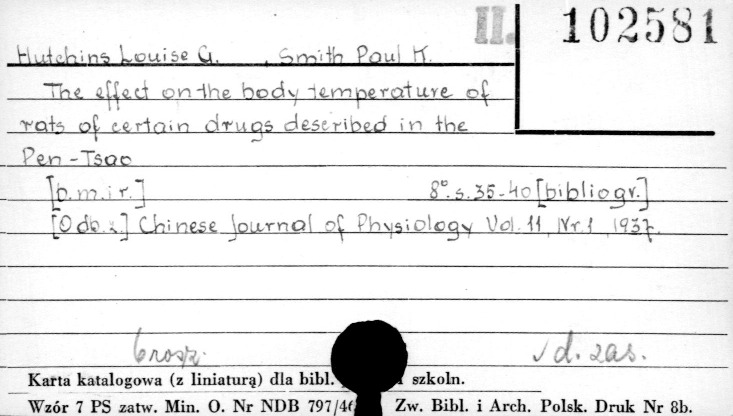 II. 102581
Hutchins Louise G. , Smith Paul K.
The effect on the body temperature of
rats of certain drugs described in the
Pen-Tsao
[b.m.i r.] 8°. s. 35-40 [bibliogr.]
[Odb. z.] Chinese Journal of Physiology Vol. 11, Nr. 1, 1937.
brosz. d. zas.
Karta katalogowa (z liniaturą) dla bibl. szkoln.
Wzór 7 PS zatw. Min. O. Nr NDB 797/46 Zw. Bibl. i Arch. Polsk. Druk Nr 8b.